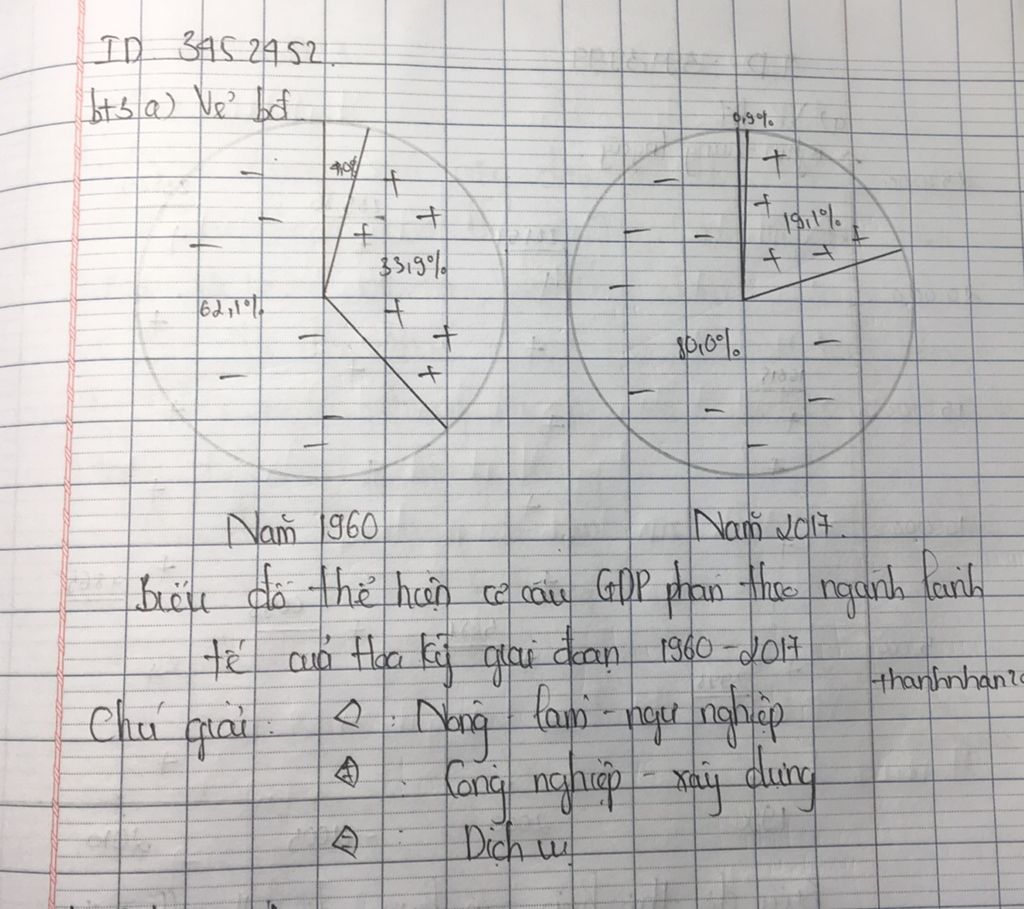 ID 3452452.
bt3 a) Vẽ bđ
4,0%
33,9%
62,1%
0,9%
19,1%
80,0%
Năm 1960
Năm 2017.
Biểu đồ thể hiện cơ cấu GDP phân theo ngành kinh
tế của Hoa Kỳ giai đoạn 1960-2017
thanhnhan20
Chú giải: : Nông - lâm - ngư nghiệp
: Công nghiệp - xây dựng
: Dịch vụ